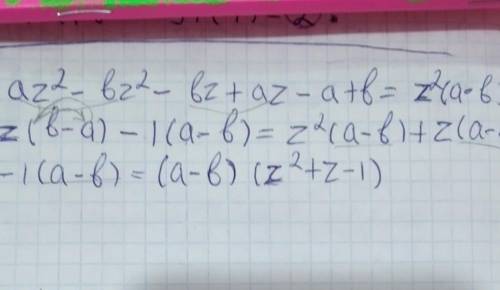 az² - bz² - bz + az - a + b = z²(a-b
z(b-a) - 1(a-b) = z²(a-b) + z(a-
-1(a-b) = (a-b)(z²+z-1)